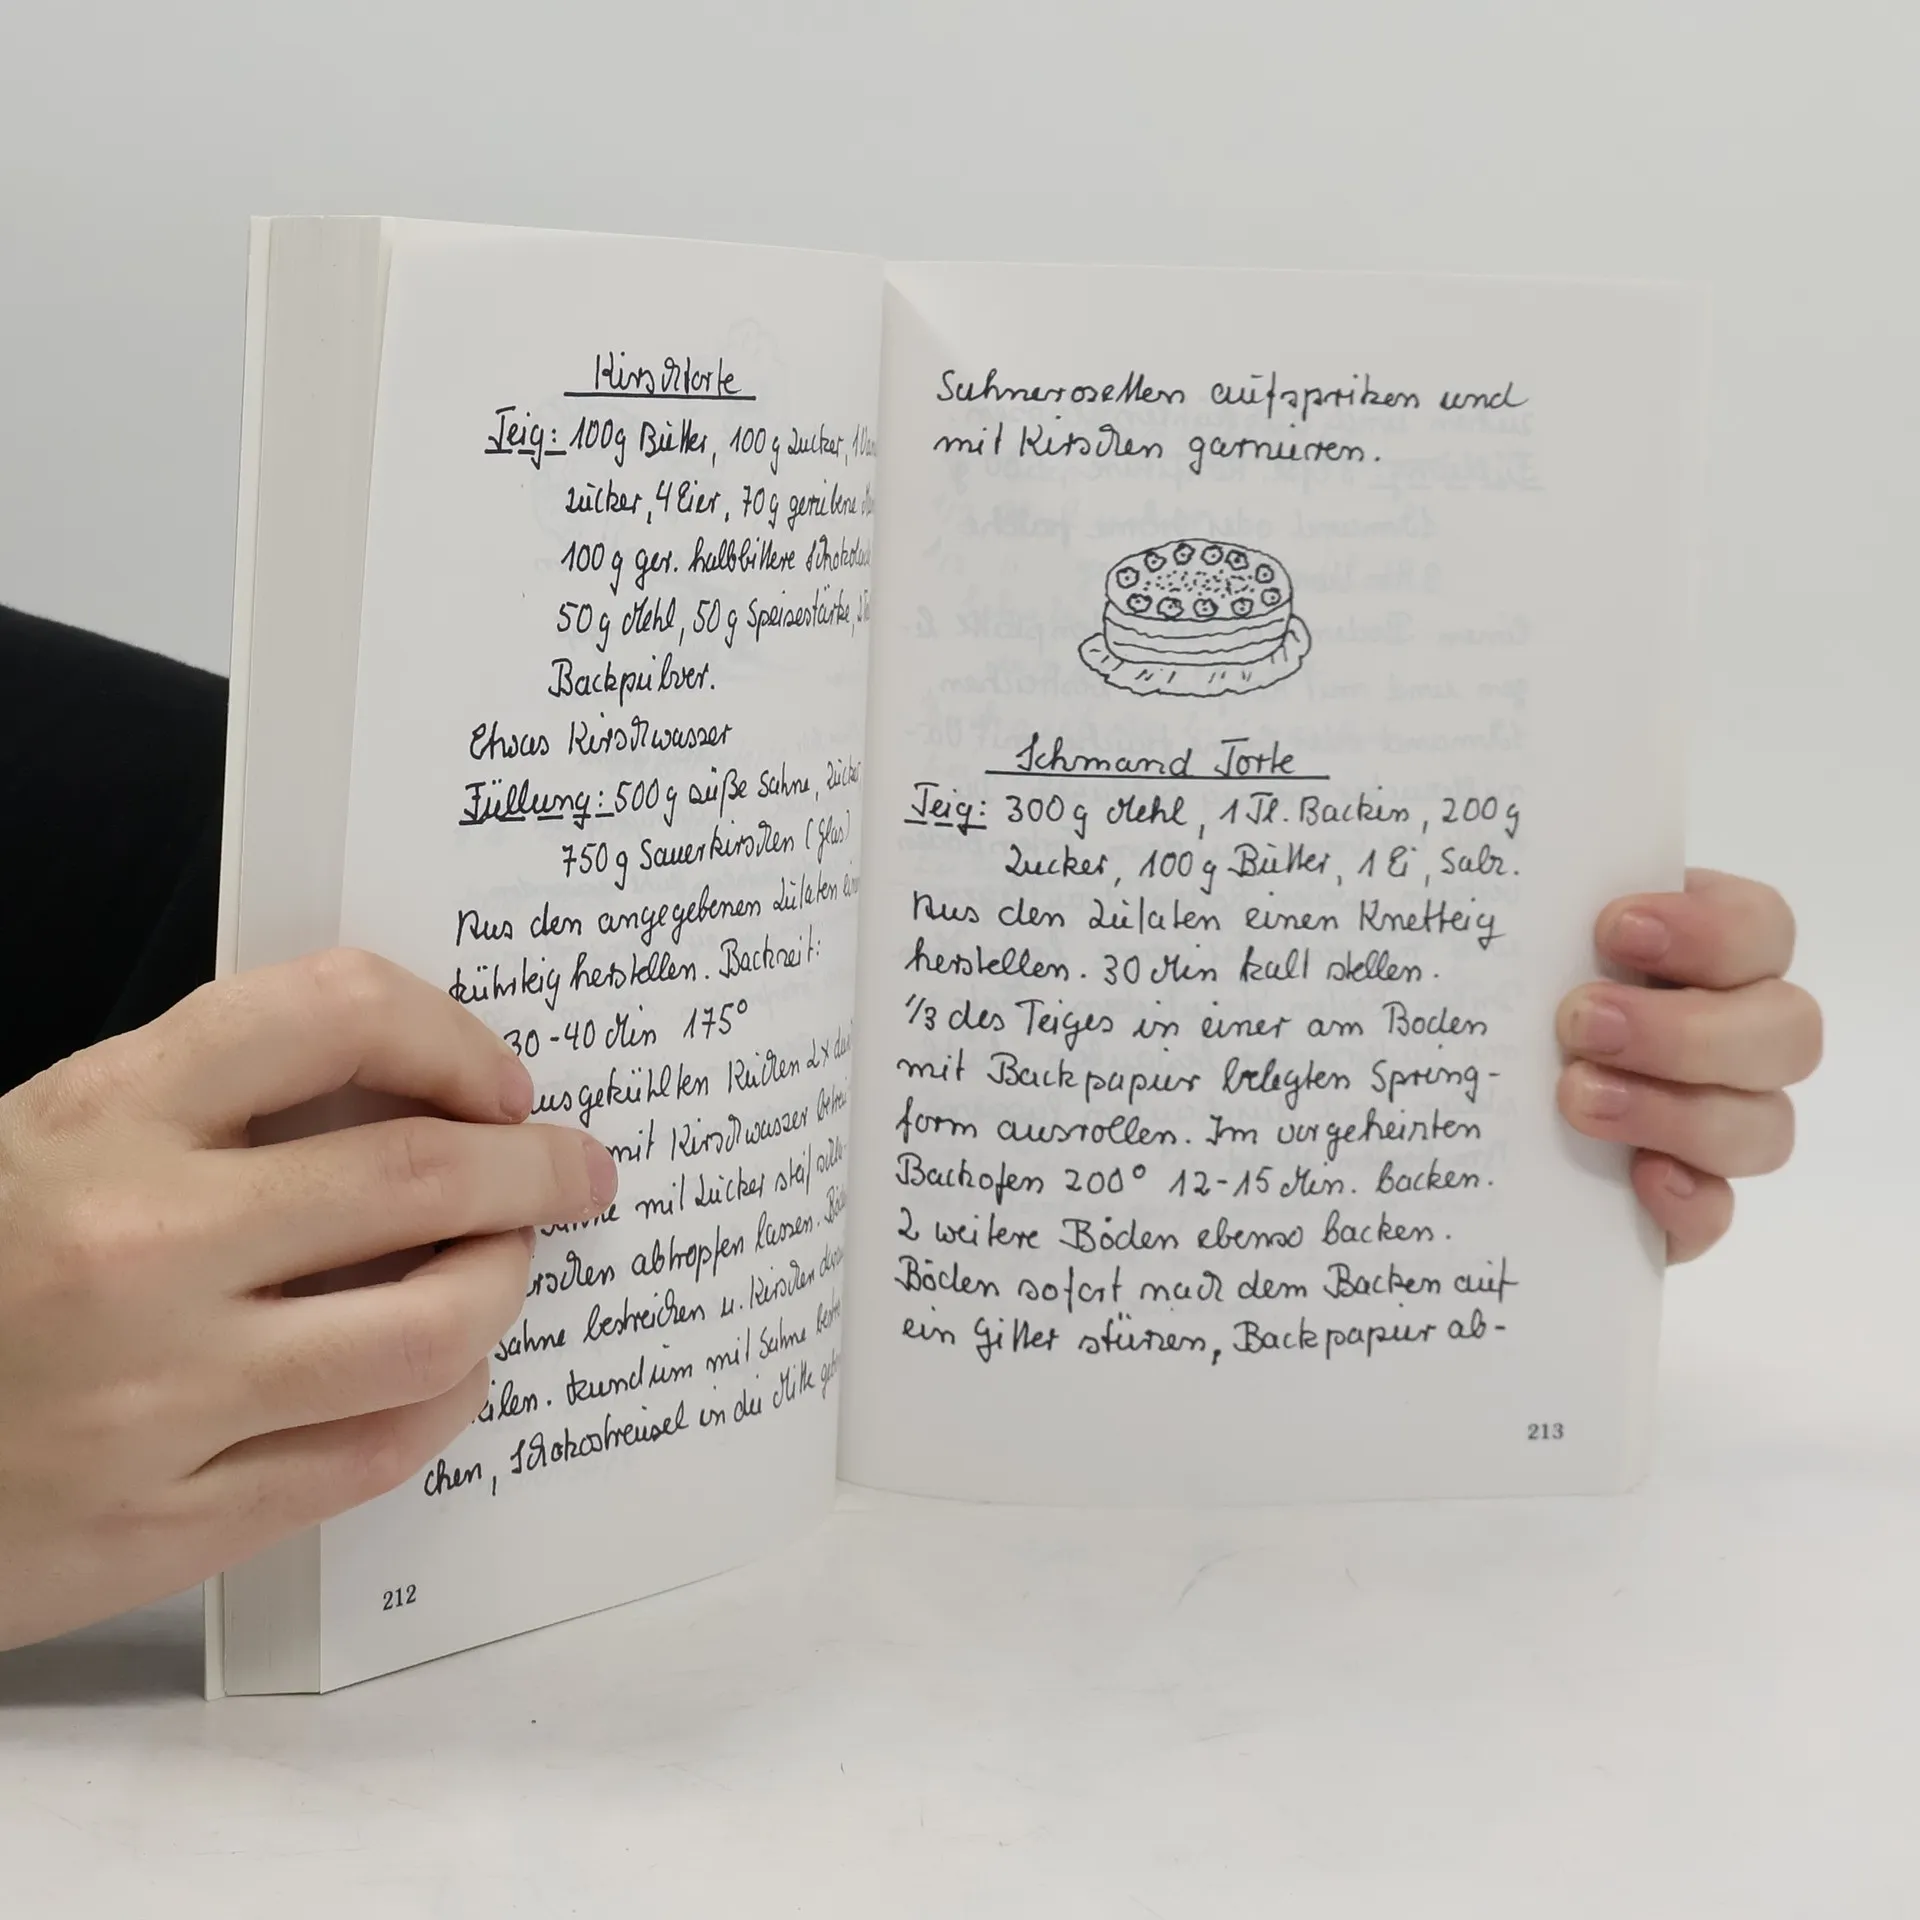 Kirschtorte
Teig: 100g Butter, 100g Zucker, 1
zucker, 4 Eier, 70g geriebene
100g ger. halbbittere
50g Mehl, 50g Speisestärke,
Backpulver.
Etwas Kirschwasser
Füllung: 500g süße Sahne, Zucker
750g Sauerkirschen (Glas)
Aus den angegebenen Zutaten
Rührteig herstellen. Backzeit:
30-40 Min 175°
ausgekühlten Kuchen 2x
mit Kirschwasser
mit Zucker steif
abtropfen lassen.
Sahne bestreichen u. Kirschen
Rundum mit Sahne
chen, Schokostreusel in die Mitte
212
Sahnerosetten aufspritzen und
mit Kirschen garnieren.
Schmand Torte
Teig: 300g Mehl, 1 Tl. Backin, 200g
Zucker, 100g Butter, 1 Ei, Salz.
Aus den Zutaten einen Knetteig
herstellen. 30 Min kalt stellen.
1/3 des Teiges in einer am Boden
mit Backpapier belegten Spring-
form ausrollen. Im vorgeheizten
Backofen 200° 12-15 Min. backen.
2 weitere Böden ebenso backen.
Böden sofort nach dem Backen auf
ein Gitter stürzen, Backpapier ab-
213